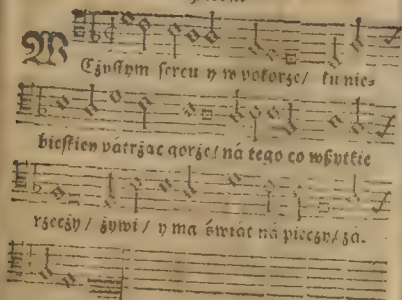 W
Cżystym sercu y w pokorze/ ku nie-
bieskiey pátrżąc gorże/ ná tego co wszytkie
rzecży/ żywi/ y ma świát ná pieczy/ zá.